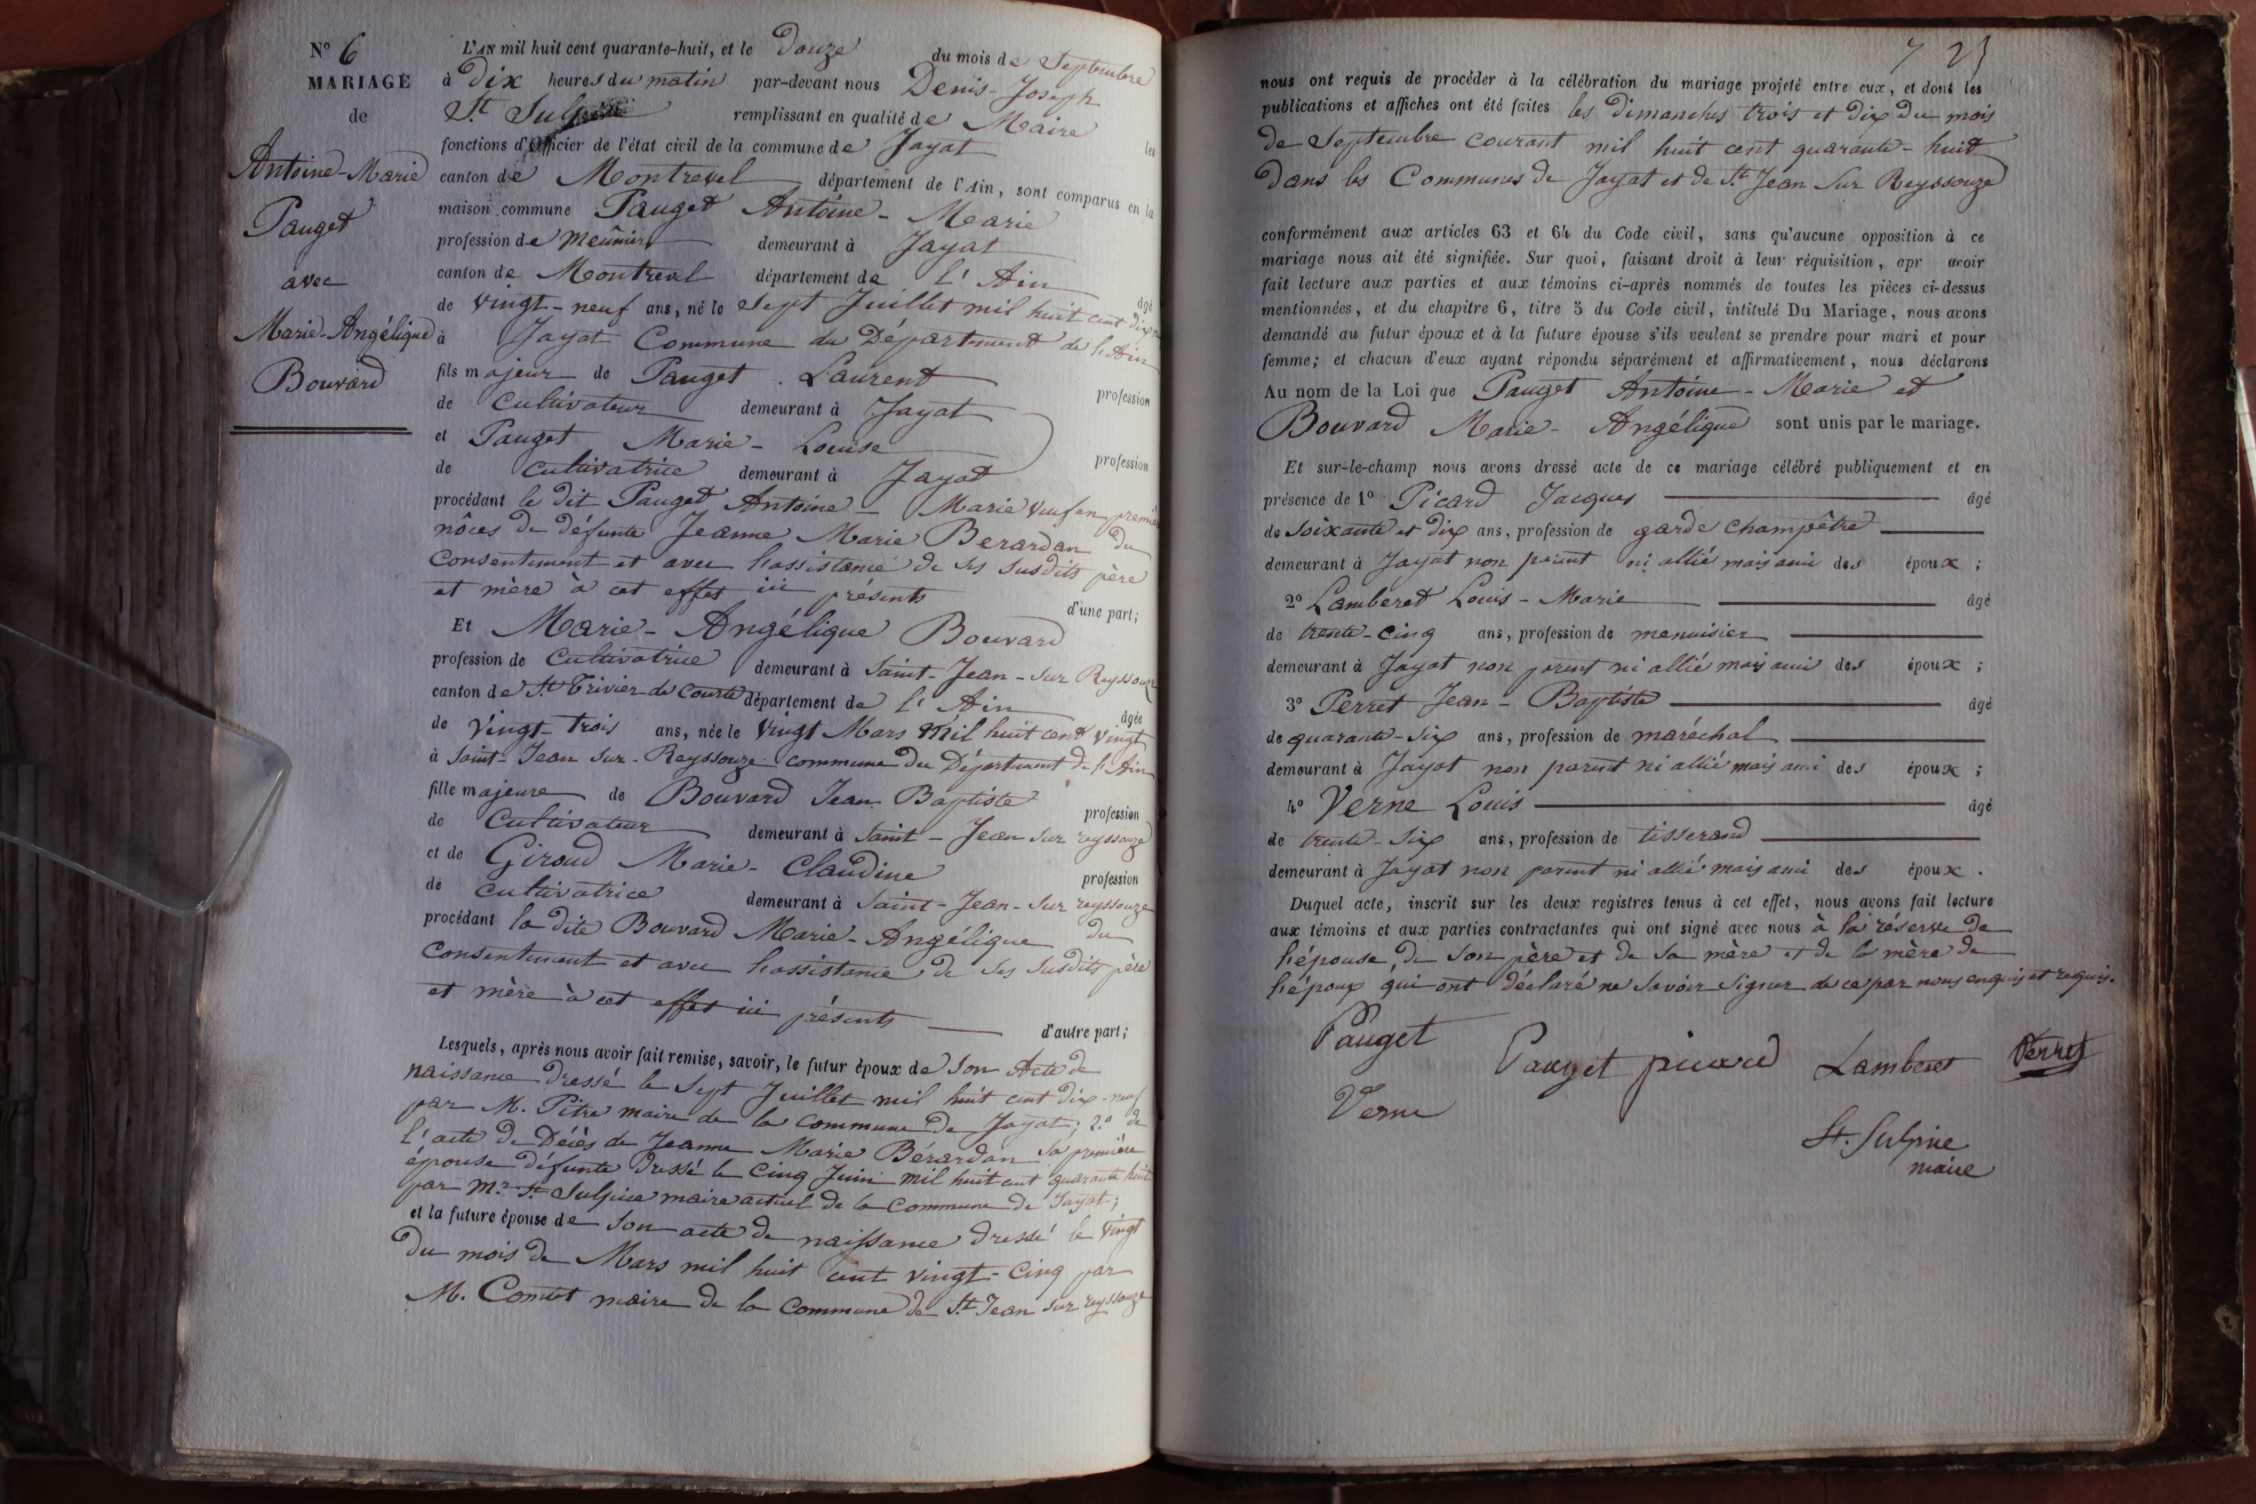 N.º 6
MARIAGE
de
Antoine-Marie
Pauget
avec
Marie-Angélique
Bouvard
L'AN mil huit cent quarante-huit, et le douze du mois de Septembre
à dix heures du matin par-devant nous Denis-Joseph
St. Sulpice remplissant en qualité de Maire les
fonctions d'Officier de l'état civil de la commune de Jayat
canton de Montrevel département de l'Ain, sont comparus en la
maison commune Pauget Antoine-Marie
profession de Meûnier demeurant à Jayat
canton de Montrevel département de l'Ain âgé
de vingt-neuf ans, né le Sept Juillet mil huit cent dix
à Jayat Commune du Département de l'Ain
fils majeur de Pauget Laurent profession
de Cultivateur demeurant à Jayat
et Pauget Marie-Louise profession
de Cultivatrice demeurant à Jayat
procédant le dit Pauget Antoine-Marie veuf en premières
nôces de défunte Jeanne Marie Berardan du
Consentement et avec l'assistance de ses susdits père
et mère à cet effet ici présents d'une part;
Et Marie-Angélique Bouvard
profession de Cultivatrice demeurant à Saint-Jean-sur Reyssouze
canton de St. Trivier de Courtes département de l'Ain âgée
de vingt-trois ans, née le vingt Mars mil huit cent vingt
à Saint-Jean sur-Reyssouze commune du Département de l'Ain
fille majeure de Bouvard Jean Baptiste profession
de Cultivateur demeurant à Saint-Jean sur reyssouze
et de Giroud Marie-Claudine profession
de Cultivatrice demeurant à Saint-Jean-sur reyssouze
procédant la dite Bouvard Marie-Angélique du
Consentement et avec l'assistance de ses susdits père
et mère à cet effet ici présents d'autre part;
Lesquels, après nous avoir fait remise, savoir, le futur époux de son Acte de
naissance dressé le Sept Juillet mil huit cent dix-neuf
par M. Pitre maire de la commune de Jayat; 2.º de
l'acte de Décès de Jeanne Marie Bérardan sa première
épouse défunte dressé le cinq Juin mil huit cent quarante huit
par Mr. St. Sulpice maire actuel de la Commune de Jayat;
et la future épouse de son acte de naissance dressé le vingt
du mois de Mars mil huit cent vingt-cinq par
M. maire de la Commune de St. Jean sur reyssouze
7 23
nous ont requis de procéder à la célébration du mariage projeté entre eux, et dont les
publications et affiches ont été faites les dimanches trois et dix du mois
de Septembre courant mil huit cent quarante-huit
dans les Communes de Jayat et de St. Jean sur Reyssouze
conformément aux articles 63 et 64 du Code civil, sans qu'aucune opposition à ce
mariage nous ait été signifiée. Sur quoi, faisant droit à leur réquisition, apr avoir
fait lecture aux parties et aux témoins ci-après nommés de toutes les pièces ci-dessus
mentionnées, et du chapitre 6, titre 5 du Code civil, intitulé Du Mariage, nous avons
demandé au futur époux et à la future épouse s'ils veulent se prendre pour mari et pour
femme; et chacun d'eux ayant répondu séparément et affirmativement, nous déclarons
Au nom de la Loi que Pauget Antoine-Marie et
Bouvard Marie-Angélique sont unis par le mariage.
Et sur-le-champ nous avons dressé acte de ce mariage célébré publiquement et en
présence de 1º Picard Jacques âgé
de soixante et dix ans, profession de garde champêtre
demeurant à Jayat non parent ni allié mais ami des époux ;
2º Lamberet Louis-Marie âgé
de trente-cinq ans, profession de menuisier
demeurant à Jayat non parent ni allié mais ami des époux ;
3º Perret Jean-Baptiste âgé
de quarante-six ans, profession de maréchal
demeurant à Jayat non parent ni allié mais ami des époux ;
4º Verne Louis âgé
de trente-six ans, profession de tisserand
demeurant à Jayat non parent ni allié mais ami des époux .
Duquel acte, inscrit sur les deux registres tenus à cet effet, nous avons fait lecture
aux témoins et aux parties contractantes qui ont signé avec nous à la réserve de
l'épouse, de son père et de sa mère et de la mère de
l'époux qui ont déclaré ne savoir signer de ce par nous enquis et requis.
Pauget Pauget picard Lamberet Perret
Verne
St. Sulpice
maire